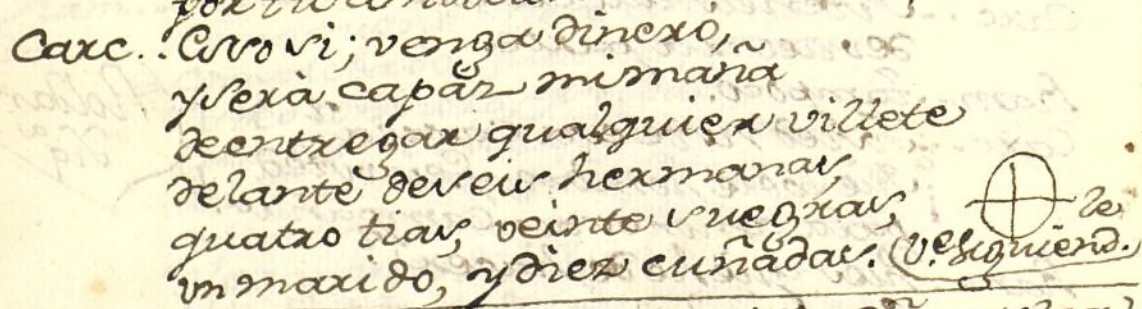 Carc. Eso si; venga dinero,
y serà capàz mi maña
de entregar qualquier villete
delante de seis hermanas,
quatro tias, veinte suegras, le
un marido, y diez cuñadas. (V.e siguiend.)